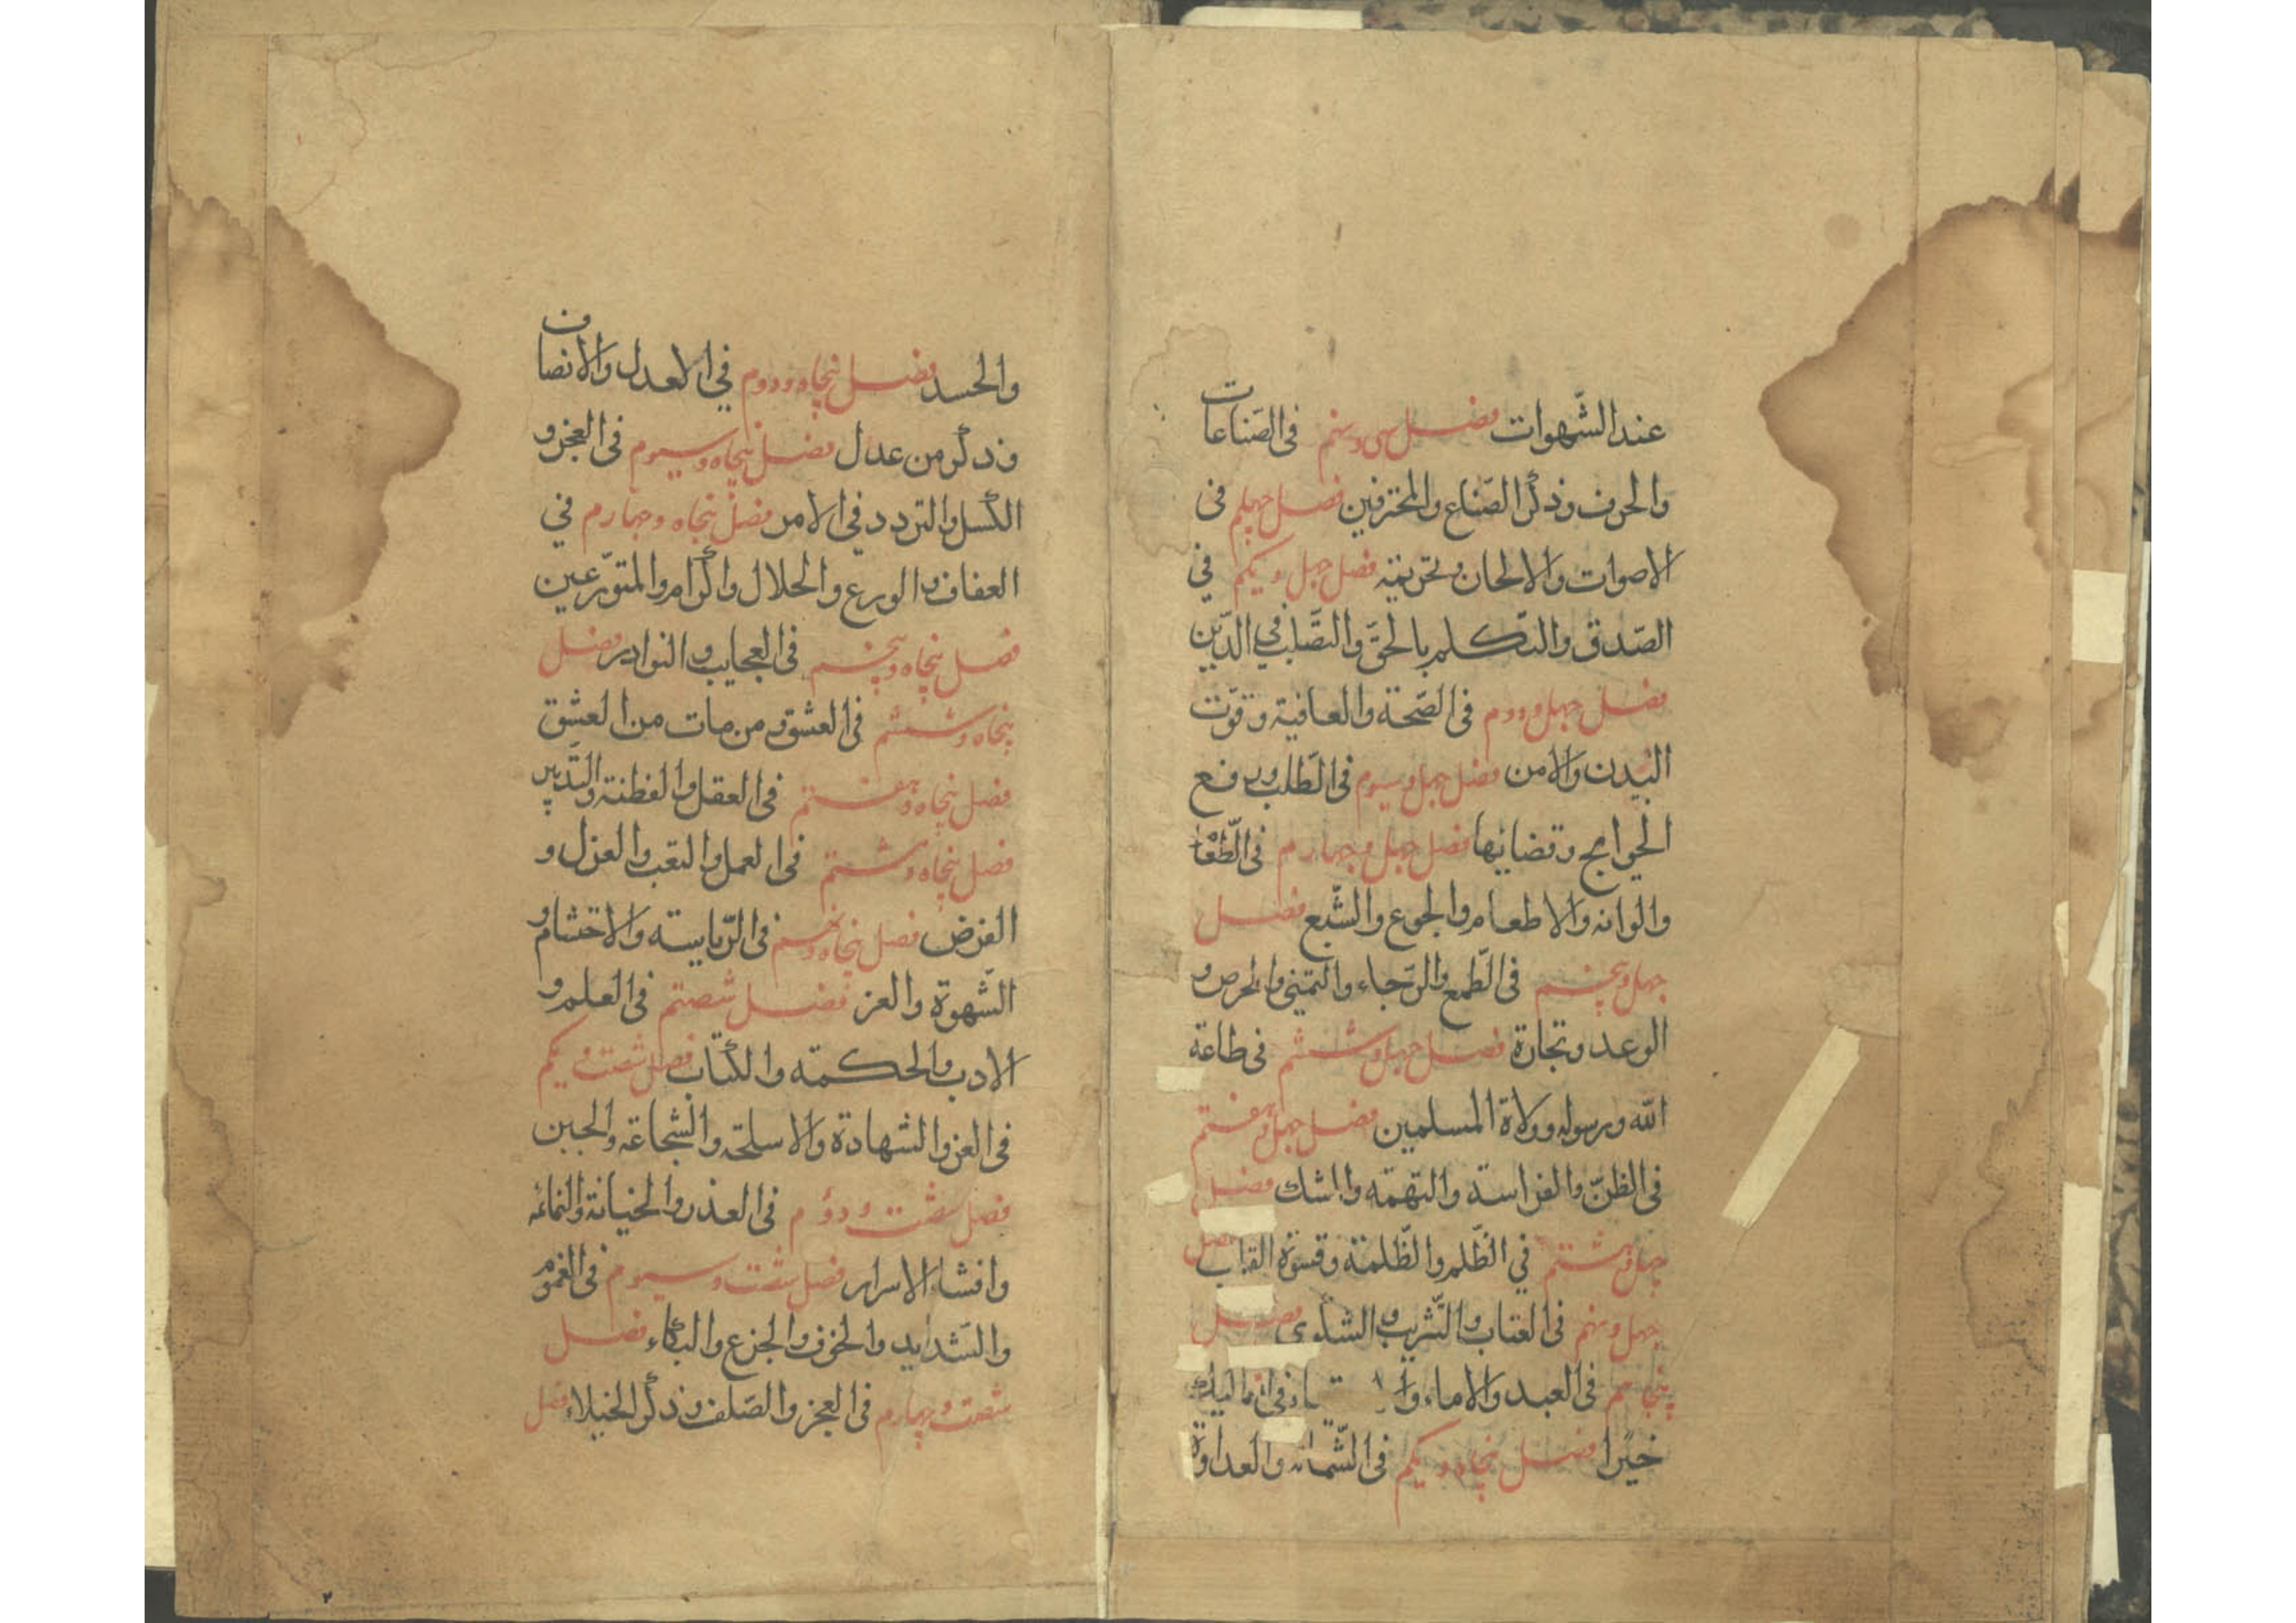 عند الشّهوات فصل سی و نهم فی الصّناعات
والحرف وذکر الصّناع والمحترفین فصل چهلم فی
الاصوات والالحان وتحریمه فصل چهل و یکم فی
الصّدق والتکلم بالحقّ والتصّلب فی الدّین
فصل چهل و دوم فی الصّحة والعافیة وقوّت
البدن والامن فصل چهل و سیوم فی الطّلب ورفع
الحوایج وقضائها فصل چهل و چهارم فی الطّعا
والوانه والاطعام والجوع والشّبع فصل
چهل و پنجم فی الطّمع والرّجاء والتمنی والحرص و
الوعد وتجارة فصل چهل و ششم فی طاعة
الله ورسوله وولاة المسلمین فصل چهل و هفتم
فی الظنّ والفراسة والتهمة والشك فصل
چهل و هشتم فی الظّلم والظّلمة وقسوة القلب فصل
چهل و نهم فی العتاب والتّثریب والشکوی فصل
پنجاهم فی العبد والاماء وا
خیرا فصل پنجاه و یکم فی الشّماته والعداوة
والحسد فصل پنجاه و دوم فی العدل والانصاف
وذکر من عدل فصل پنجاه و سیوم فی العجز و
الکسل والتردد فی الامر فصل پنجاه و چهارم فی
العفاف والورع والحلال واکرام والمتورّعین
فصل پنجاه و پنجم فی العجایب والنوادر فصل
پنجاه و ششم فی العشق ومن مات من العشق
فصل پنجاه و هفتم فی العقل والفطنة والتّدبیر
فصل پنجاه و هشتم فی العمل والتعب والعزل و
الفرض فصل پنجاه و نهم فی الرّیاسته والاحتشام و
الشّهوة والعز فصل شصتم فی العلم و
الادب والحکمته والکتاب فصل شصت و یکم
فی العز والشهادة والاسلحة والشّجاعة والجبن
فصل شصت و دوم فی العذر والخیانة والنمائمه
وافشاء الاسرار فصل شصت و سیوم فی الغموم
والشدایدِ والخوف والجزع والبکاء فصل
شصت و چهارم فی العجز والصّلف وذکر الخیلاء فصل
۲